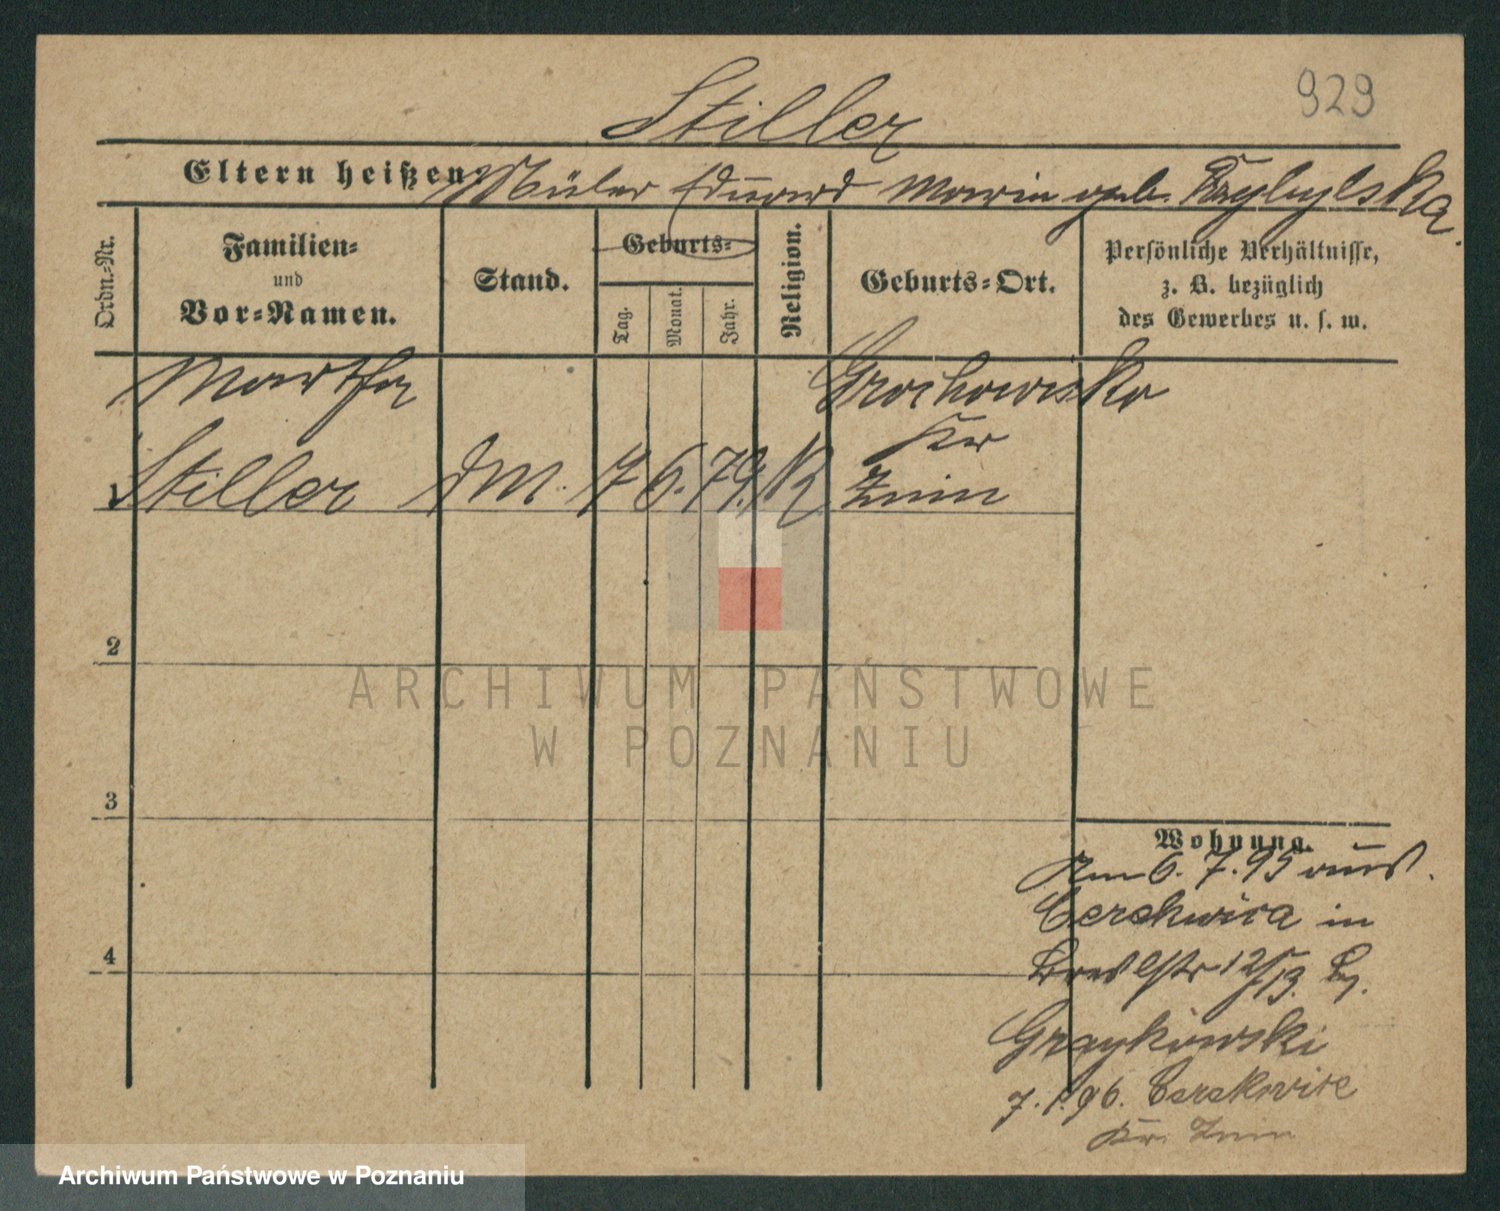 929
Stiller
Eltern heißen: Müler Eduard Maria geb. Przybylska.
Ordn.-Nr.
Familien-
und
Vor-Namen.
Stand.
Geburts-
Tag.
Monat.
Jahr.
Religion.
Geburts-Ort.
Persönliche Verhältnisse,
z. B. bezüglich
des Gewerbes u. s. w.
Martha
Stiller
DM.
7 6. 79.
K
Grochowiska
Kr
Znin
2
3
4
Wohnung.
Am 6. 7. 95 aus
Cerekwica in
Bresl Str 12/13. b.
7. 1. 96. Cerekwice
Kr. Znin
ARCHIWUM PAŃSTWOWE
W POZNANIU
Archiwum Państwowe w Poznaniu